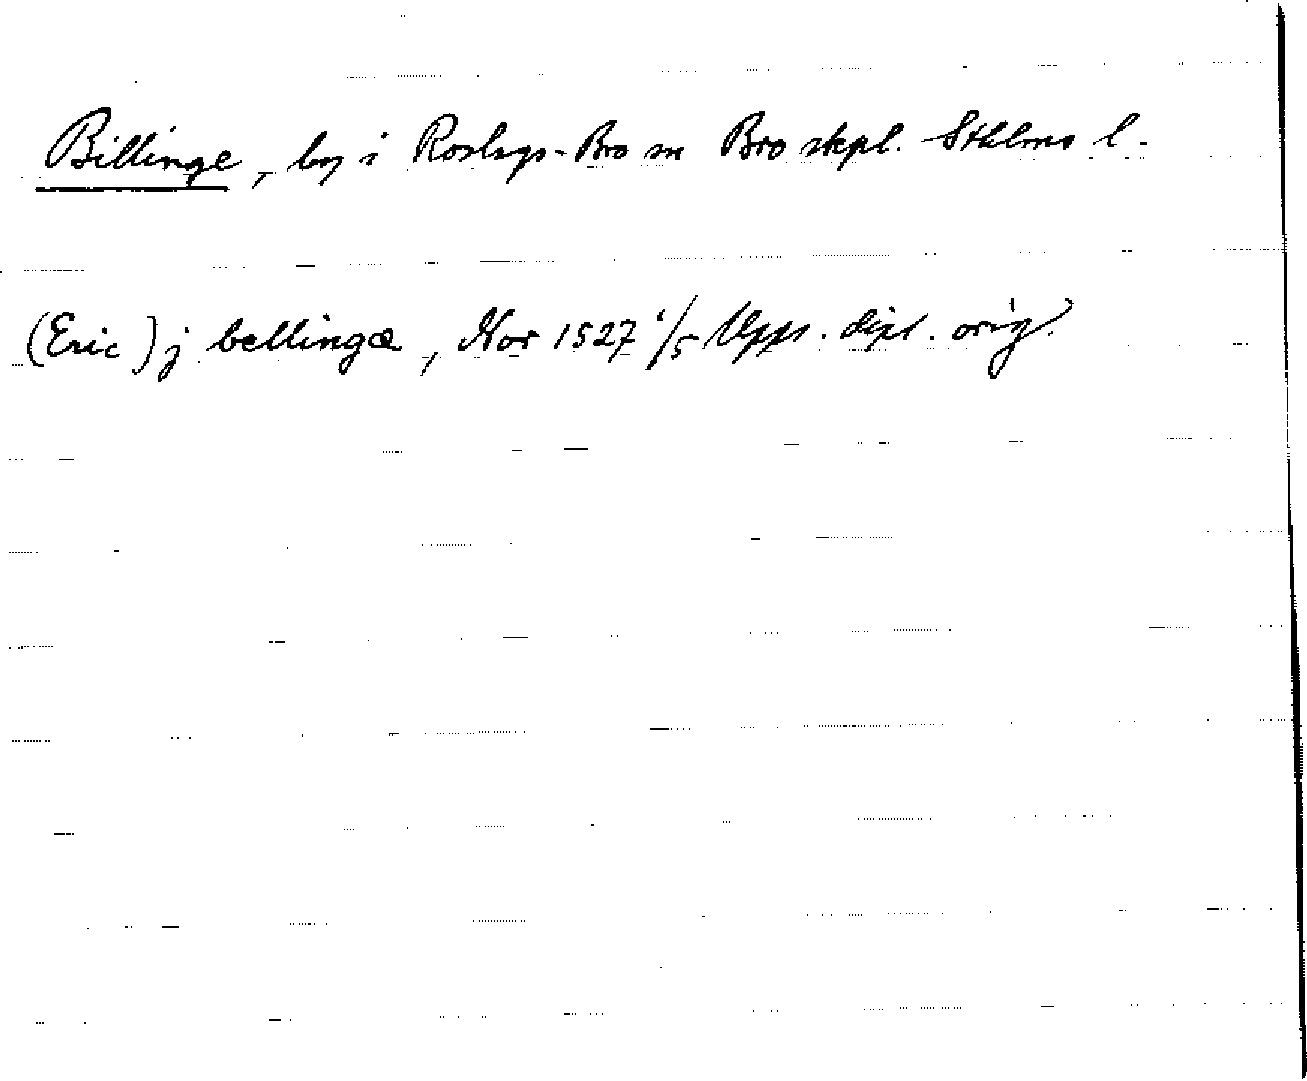 Billinge, by i Roslags-Bro sn Bro skpl. Sthlms l.
(Eric) j bellingæ, Nor 1527 1/5 Upps. dipl. orig.